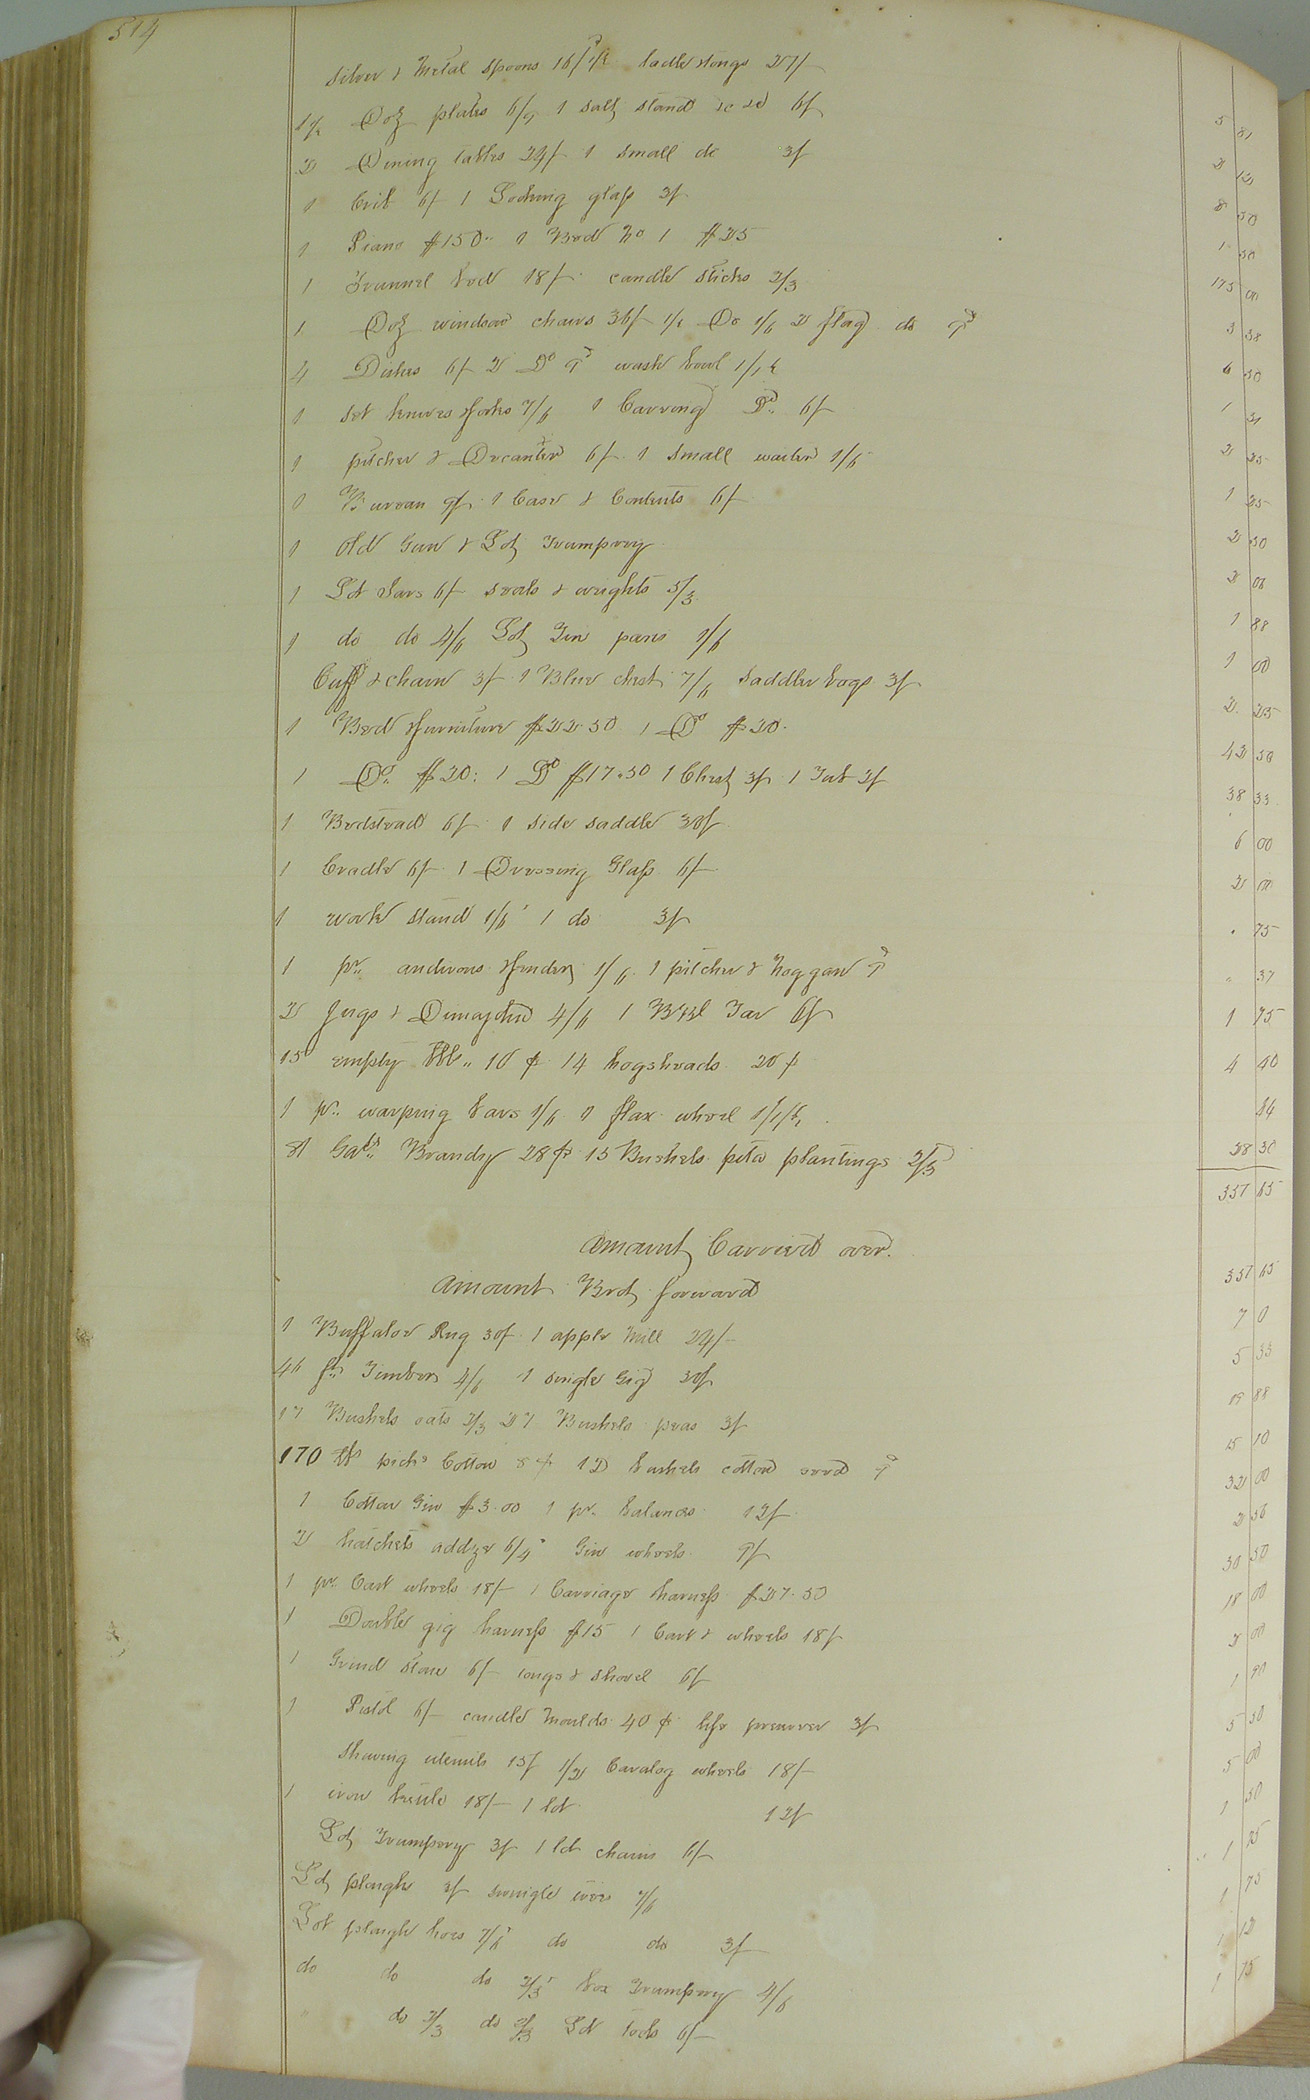 514
Silver & Metal Spoons 16/ Sadle tongs 27/
1½ Doz plates 6/9 1 Salt stand &c &c 6/ 5 81
2 Dining tables 24/ 1 small do 3/ 2 13
1 Crib 6/ 1 Looking glass 3/ 8 50
1 Piano $150.. 1 Bed No 1 $25 1 50
1 Trunnel bed 18/ candle sticks 2/3 175 00
1 Doz windsor chairs 36/ ½ Do 1/6 2 flag do 9d 3 38
4 Dishes 6/ 2 Do 9d wash bowl 1/1½ 6 50
1 Set knives & forks 7/6 1 Carving Do 6/ 1 31
1 pitcher & Decanter 6/ 1 small waiter 1/6 2 25
1 Bureau 9/ 1 Case & Contents 6/ 1 25
1 Old Gun & Lot Trumpery 2 50
1 Lot Jars 6/ seals & weights 5/3 2 06
1 do do 4/6 Lot Tin pans 1/6 1 88
Cuff & chain 3/ 1 Blue chest 7/6 Saddle bags 3/ 1 00
1 Bed & furniture $22.50 1 Do $20. 2 25
1 Do. $20: 1 Do $17.50 1 Chest 3/ 1 Tub 2/ 42 50
1 Bedstead 6/ 1 side saddle 30/ 38 33
1 Cradle 6/ 1 Dressing Glass 6/ 6 00
1 work stand 1/6 1 do 3/ 2 00
1 pr. andirons & fender 1/6 1 pitcher & noggan 9d . 75
2 Jugs & Dimajohn 4/6 1 Bbl Tar 6/ " 37
15 empty Bbls.. 10 ¢ 14 hogsheads 20 ¢ 1 75
1 pr.. warping bars 1/6 1 flax wheel 1/1½ 4 40
8 Gals.. Brandy 28 ¢ 15 Bushels peta plantings 2/3 84
38 30
357 65
Amount Carried over.
Amount Brot forward 357 65
1 Buffaloe Rug 30/ 1 apple Mill 24/ 7 0
46 ft Timber 4/6 1 single Gig 30/ 5 33
17 Bushels oats 2/3 27 Bushels peas 3/ 19 88
170 lbs picks Cotton 8 ¢ 12 bushels cotton seed 9d 15 10
1 Cotton Gin $3.00 1 pr. balances 12/ 32 00
2 hatchets addze 6/9 Gin wheels 9/ 2 56
1 pr. Cart wheels 18/ 1 Carriage harness $27.50 30 50
1 Double gig harness $15 1 Cart & wheels 18/ 18 00
1 Grind Stone 6/ tongs & shovel 6/ 2 00
1 Pistol 6/ candle moulds 40 ¢ life preserver 3/ 1 90
Shaving utensils 15/ ½ Cavalog wheels 18/ 5 50
1 iron kettle 18/ 1 lot 12/ 5 00
Lot Trumpery 3/ 1 lot chains 6/ 1 50
Lot plough 3/ swingle irons 7/6 1 25
Lot plough hoes 7/6 do do 3/ 1 75
do do do 2/3 box Trumpery 4/6 1 12
do 2/3 do 2/3 Lot tools 6/ 1 75